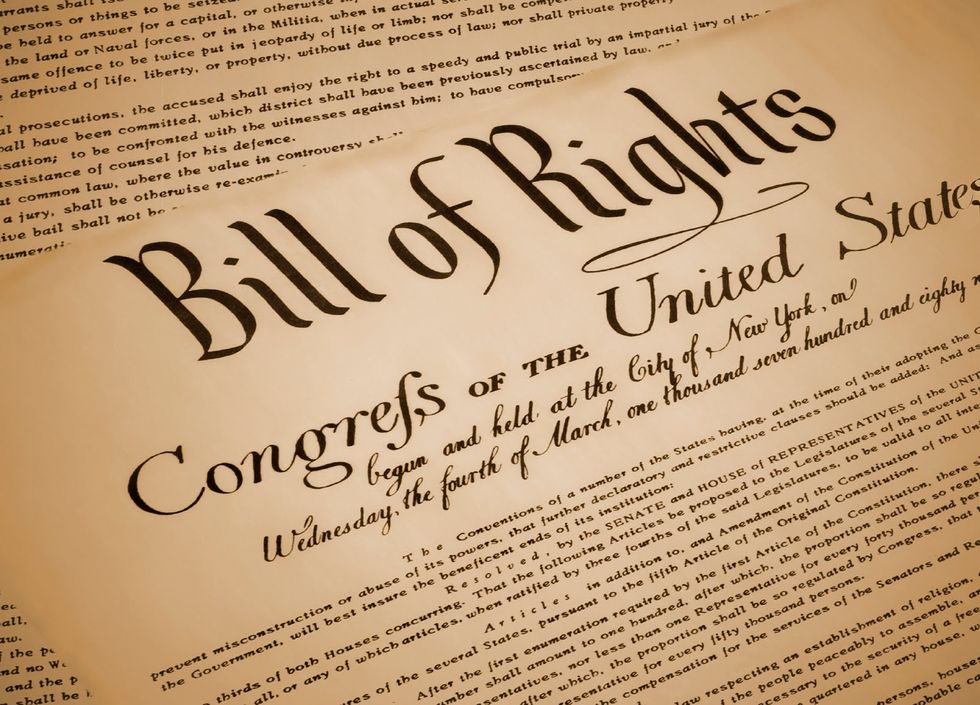 rrants shall iss
persons or things to be seized
be held to answer for a capital, or otherwise
the land or Naval forces, or in the Militia, when in actual
same offence to be twice put in jeopardy of life or limb; nor shall be compe
deprived of life, liberty, or property, without due process of law; nor shall private property
al prosecutions, the accused shall enjoy the right to a speedy and public trial by an impartial jury of the
all have been committed, which district shall have been previously ascertained by law,
sation; to be confronted with the witnesses against him; to have compulsor
assistance of counsel for his defence.
at common law, where the value in controversy shall
a jury, shall be otherwise re-exami
ive bail shall not be
numerati
Bill of Rights
Congreſs OF THE United States
begun and held at the City of New York, on
Wednesday, the fourth of March, one thousand seven hundred and eighty n
The Conventions of a number of the States having, at the time of their adopting the C
prevent misconstruction or abuse of its powers, that further declaratory and restrictive clauses should be added: And as
the Government, will best insure the beneficent ends of its institution:
Resolved, by the SENATE and HOUSE of REPRESENTATIVES of the UNIT
thirds of both Houses concurring. That the following Articles be proposed to the Legislatures of the several S
all, or any of which articles, when ratified by three fourths of the said Legislatures, to be valid to all inte
Articles in addition to, and Amendment of the Constitution of the Uni
res of the several States, pursuant to the fifth Article of the Original Constitution.
After the first enumeration required by the first Article of the Constitution, there s
mber shall amount to one hundred, after which, the proportion shall be so regul
sentatives, nor less than one Representative for every forty thousand per
after which, the proportion shall be so regulated by Congress, that
esentative for every fifty thousand persons.
the compensation for the services of the Senators and Re
law respecting an establishment of religion,
of the people peaceably to assemble, an
necessary to the security of a free
quartered in any house, w
persons, hous
probable ca
all,
law.
f the pe
nd no Wa
and the p
shall be